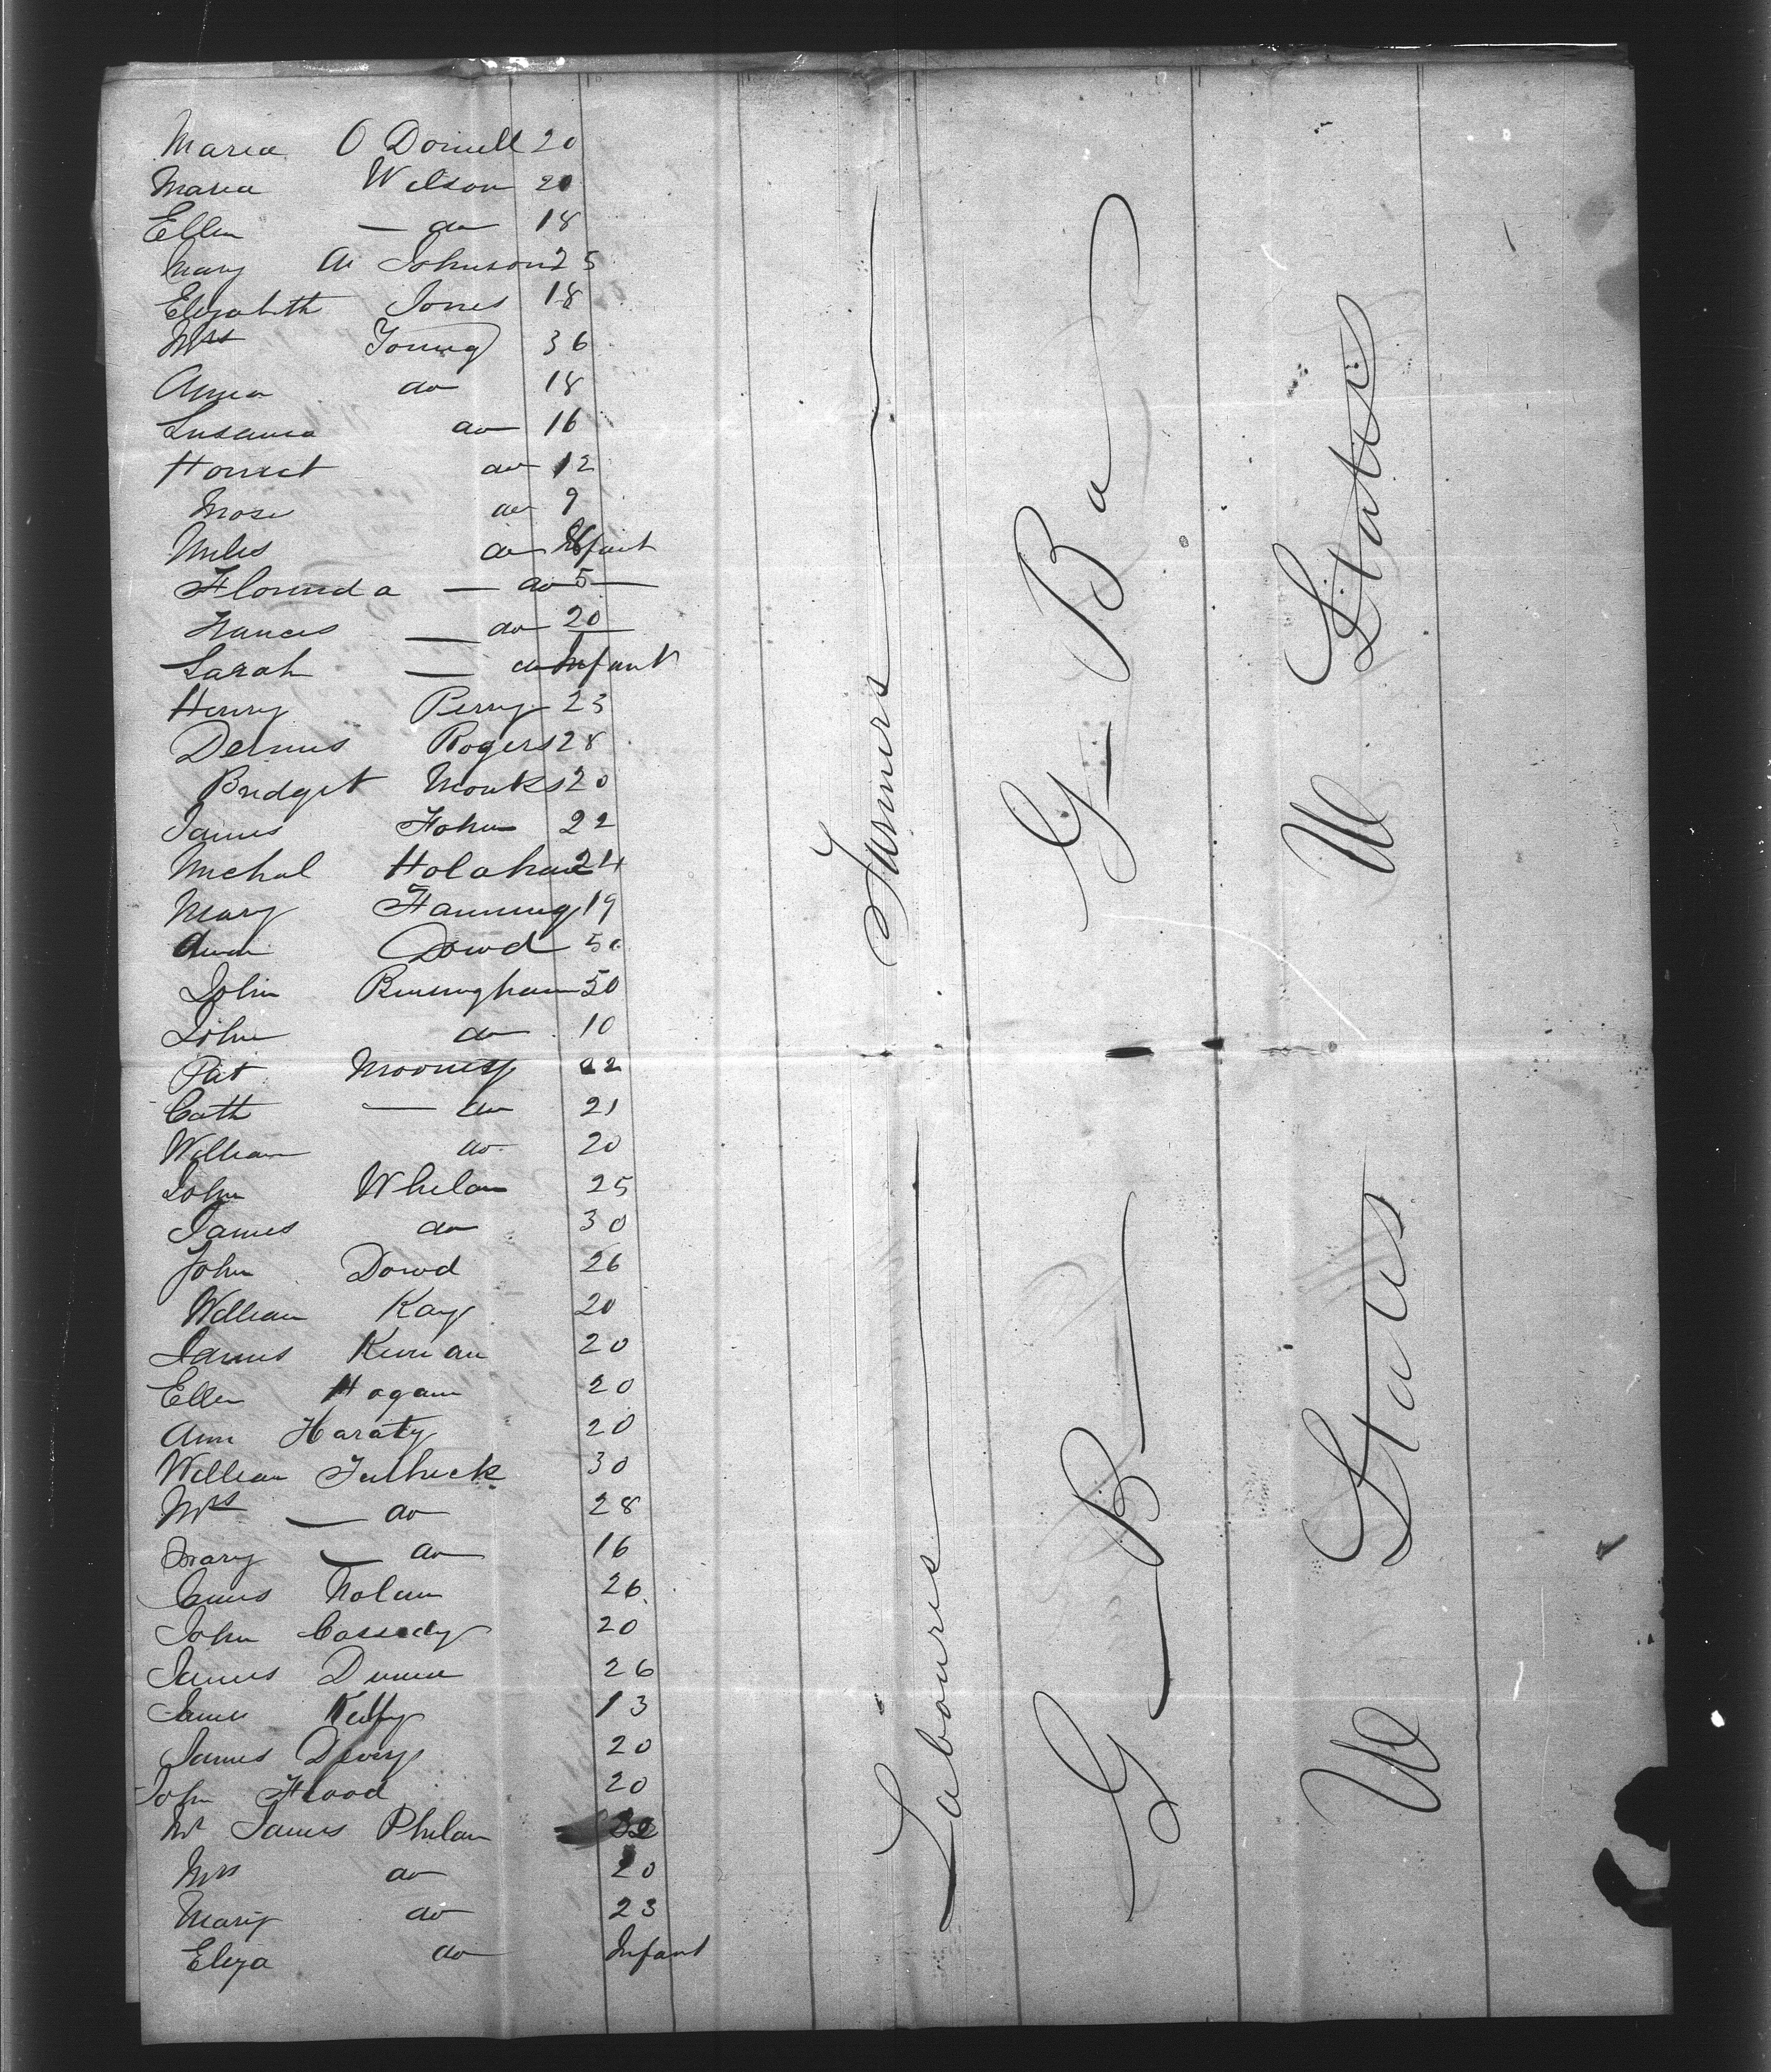 Maria O Donnell 20
Maria Wilson 20
Ellen — do 18
Mary A Johnson 25
Elizabeth Jones 18
Mrs Young 36
Anna do 18
Susanna do 16
Harriet do 12
Mose do 9
Miles do Infant
Florinda — do 5
Frances — do 20
Sarah — do Infant
Henry Perry 23
Dennis Rogers 28
Bridget Monks 20
James 22
Michal Holahan 24
Mary Fanning 19
Ann Dowd
John Birmingham 50
John do 10
Pat Mooney 22
Cath — do 21
William do 20
John Whelan 25
James do 30
John Dowd 26
William Kay 20
James Kiernan 20
Ellen Hogan 20
Ann Haraty 20
William 30
Mrs — do 28
Mary — do 16
James Nolan 26
John Cassedy 20
James Dunn 26
James Kelly 13
James Devery 20
John Flood 20
Mr James Phelan 32
Mrs do 20
Mary do 23
Eliza do Infant
Farmers
G Ba
U States
Labourers
G B
U States